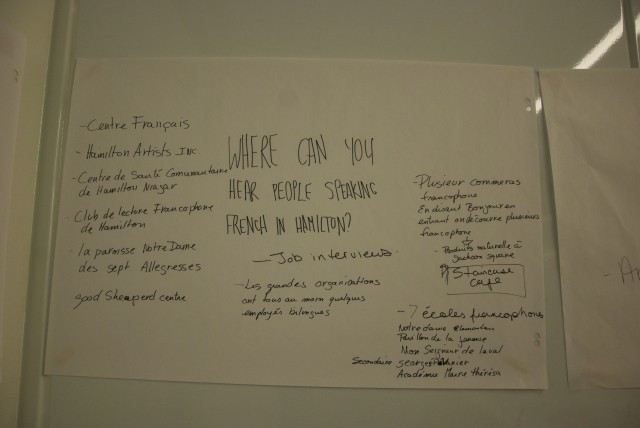 - Centre Français
- Hamilton Artists INC.
- Centre de Santé Comunautaire
de Hamilton Niagar
- Club de lecture Francophone
de Hamilton
- la paroisse Notre Dame
des sept Allegresses
good Sheperd centre
WHERE CAN YOU
HEAR PEOPLE SPEAKING
FRENCH IN HAMILTON?
- Job interviews
- Les grandes organisations
ont tous au moin quelques
employés bilingues
- Plusieur commeras
francophone
En disant Bonjour en
entrant on découvre plusieurs
francophone
- Produits naturelle à
Jackson square
Staircase
Café
- 7 écoles francophones
Notre dame
Pavillon de la jeunesse
Mon Seigneur de laval
Secondaire georges P Vanier
Académie Mère thérésa
- Ar